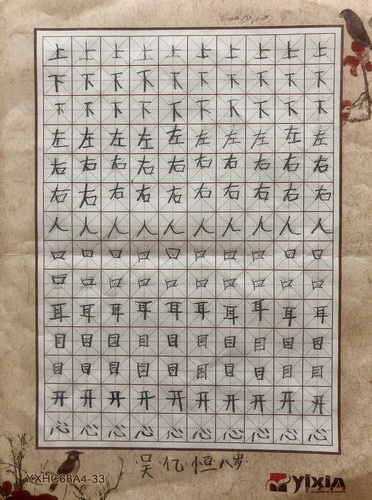 上上上上上上上上上上
下下下下下下下下下下
下下下下下下下下下下
左左左左左左左左左左
右右右右右右右右右右
右右右右右右右右右右
人人人人人人人人人人
口口口口口口口口口口
口口口口口口口口口口
耳耳耳耳耳耳耳耳耳耳
目目目目目目目目目目
目目目目目目目目目目
开开开开开开开开开开
心心心心心心心心心心
吴忆恒八岁
YXHC68A4-33
yixiA